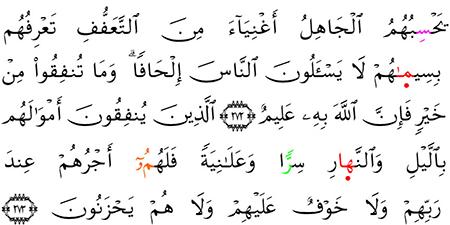 يَحْسِبُهُمُ ٱلْجَاهِلُ أَغْنِيَآءَ مِنَ ٱلتَّعَفُّفِ تَعْرِفُهُم
بِسِيمَٰهُمْ لَا يَسْـَٔلُونَ ٱلنَّاسَ إِلْحَافًا ۗ وَمَا تُنفِقُوا۟ مِنْ
خَيْرٍ فَإِنَّ ٱللَّهَ بِهِۦ عَلِيمٌ ﴿٢٧٢﴾ ٱلَّذِينَ يُنفِقُونَ أَمْوَٰلَهُم
بِٱلَّيْلِ وَٱلنَّهارِ سِرًّا وَعَلَانِيَةً فَلَهُمُۥٓ أَجْرُهُمْ عِندَ
رَبِّهِمْ وَلَا خَوْفٌ عَلَيْهِمْ وَلَا هُمْ يَحْزَنُونَ ﴿٢٧٣﴾